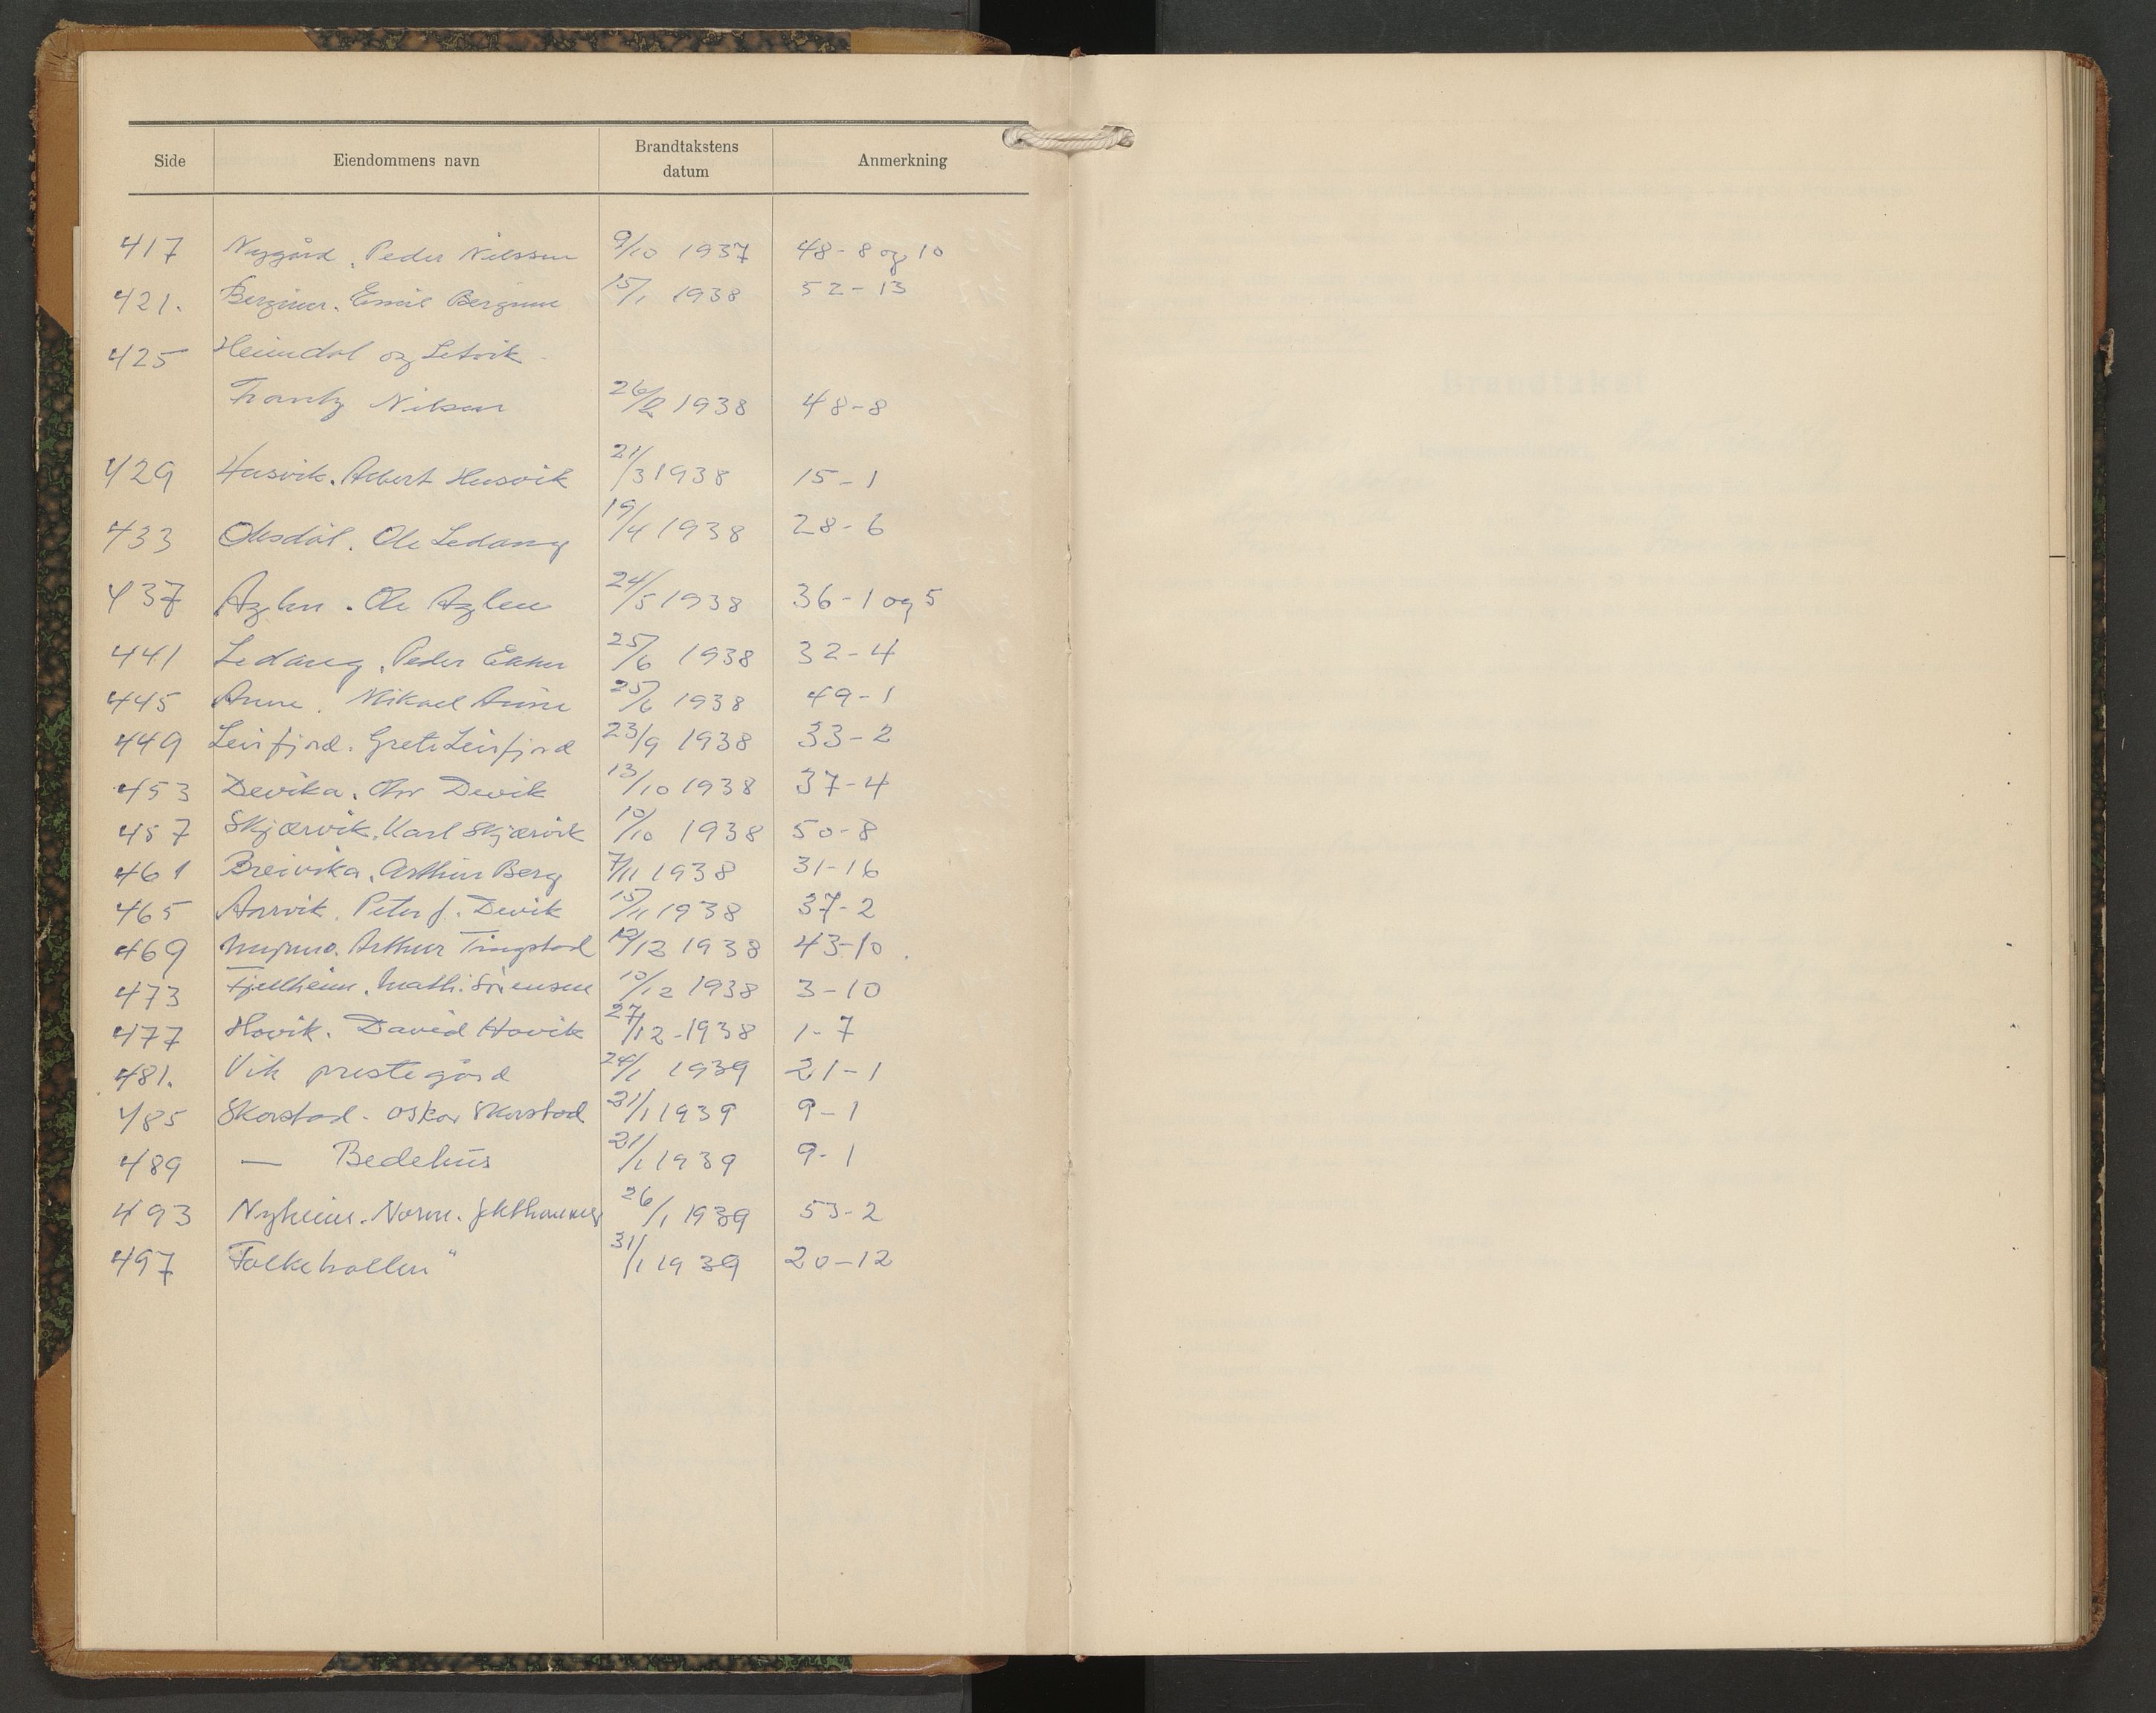 Side Eiendommens navn Brandtakstens datum Anmerkning
417 Nygård. Peder Nilssen 9/10 1937 48-8 og 10
421. Emil 15/1 1938 52-13
425 Heimdal og Letvik -
Nilsen 26/2 1938 48-8
429 Husvik. Albert Husvik 21/3 1938 15-1
433 Olsdal. Ole Ledang 19/4 1938 28-6
437 Aglen. Ole Aglen 24/5 1938 36-1 og 5
441 Ledang. Peder 25/6 1938 32-4
445 Aune. Mikael Aune 25/6 1938 49-1
449 Leirfjord. Grete Leirfjord 23/9 1938 33-2
453 Devika. Devik 13/10 1938 37-4
457 Skjærvik. Karl Skjærvik 10/10 1938 50-8
461 Breivika. Arthur Berg 7/11 1938 31-16
465 Aarvik. Peter J. Devik 15/11 1938 37-2
469 Arthur Tingstad /12 1938 43-10.
473 Fjellheim. Math. Sørensen 10/12 1938 3-10
477 Hovik. David Hovik 27/12-1938 1-7
481. Vik prestegård 24/1 1939 21-1
485 Skorstad. Oskar Skorstad 21/1 1939 9-1
489 — Bedehus 21/1 1939 9-1
493 Nyheim. Norm. 26/1 1939 53-2
497 Folkehallen" 31/1 1939 20-12